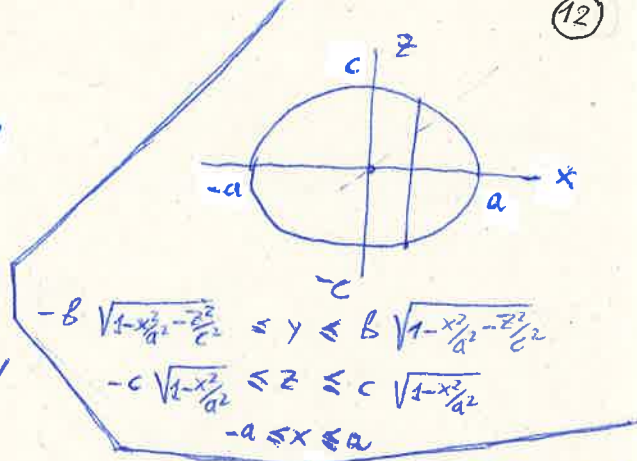 12
c z
-a a x
-c
-b √(1-x²/a²-z²/c²) ≤ y ≤ b √(1-x²/a²-z²/c²)
-c √(1-x²/a²) ≤ z ≤ c √(1-x²/a²)
-a ≤ x ≤ a